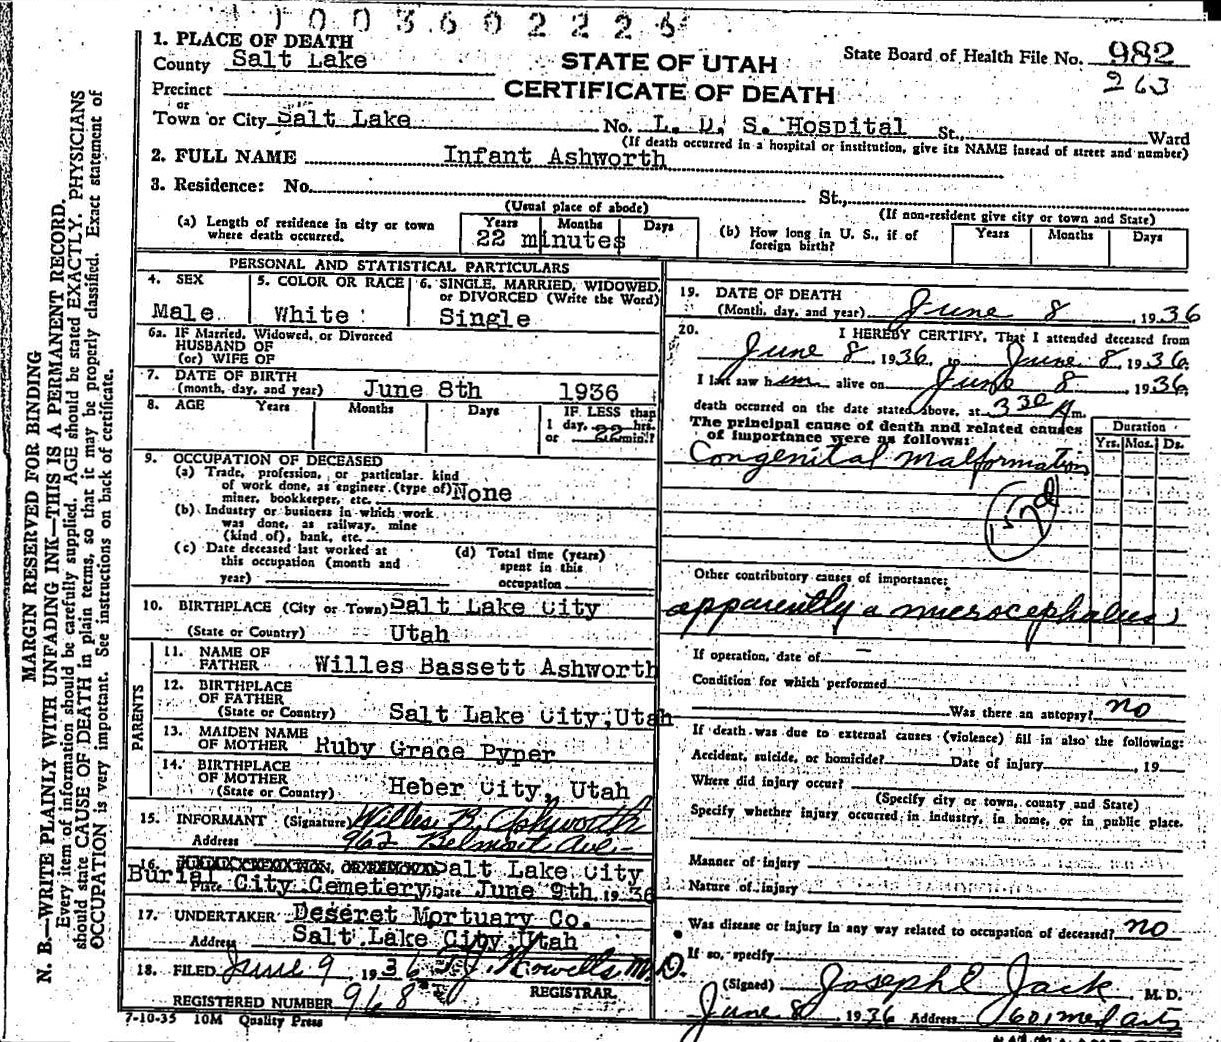 1003602226
1. PLACE OF DEATH
County Salt Lake
STATE OF UTAH
CERTIFICATE OF DEATH
State Board of Health File No. 982
263
Precinct
or
Town or City Salt Lake No. L. D. S. Hospital St., Ward
(If death occurred in a hospital or institution, give its NAME instead of street and number)
2. FULL NAME Infant Ashworth
3. Residence: No. St.,
(Usual place of abode) (If non-resident give city or town and State)
(a) Length of residence in city or town where death occurred. Years Months Days
22 minutes
(b) How long in U. S., if of foreign birth? Years Months Days
PERSONAL AND STATISTICAL PARTICULARS
4. SEX
Male
5. COLOR OR RACE
White
6. SINGLE, MARRIED, WIDOWED, or DIVORCED (Write the Word)
Single
6a. IF Married, Widowed, or Divorced
HUSBAND OF
(or) WIFE OF
7. DATE OF BIRTH
(month, day, and year) June 8th 1936
8. AGE Years Months Days IF LESS than
1 day, hrs.
or 22 min.?
9. OCCUPATION OF DECEASED
(a) Trade, profession, or particular kind
of work done, as engineer (type of)
miner, bookkeeper, etc. None
(b) Industry or business in which work
was done, as railway, mine
(kind of), bank, etc.
(c) Date deceased last worked at
this occupation (month and
year)
(d) Total time (years)
spent in this
occupation
10. BIRTHPLACE (City or Town) Salt Lake City
(State or Country) Utah
PARENTS
11. NAME OF
FATHER Willes Bassett Ashworth
12. BIRTHPLACE
OF FATHER
(State or Country) Salt Lake City, Utah
13. MAIDEN NAME
OF MOTHER Ruby Grace Pyper
14. BIRTHPLACE
OF MOTHER
(State or Country) Heber City, Utah
15. INFORMANT (Signature) Willes B. Ashworth
Address 962 Belmont Ave.
16. Salt Lake City
Burial Place City Cemetery Date June 9th 1936
17. UNDERTAKER Deseret Mortuary Co.
Address Salt Lake City, Utah
18. FILED June 9 1936 M.D.
REGISTRAR.
REGISTERED NUMBER 968
7-10-35 10M Quality Press
19. DATE OF DEATH
(Month, day, and year) June 8, 1936
20. I HEREBY CERTIFY, That I attended deceased from
June 8, 1936, to June 8 1936
I last saw him alive on June 8, 1936
death occurred on the date stated above, at 3 30 A m.
The principal cause of death and related causes
of importance were as follows:
Duration
Yrs. Mos. Ds.
Congenital malformation
157d
Other contributory causes of importance:
apparently a microcephalus
If operation, date of —
Condition for which performed
Was there an autopsy? no
If death was due to external causes (violence) fill in also the following:
Accident, suicide, or homicide? Date of injury , 19
Where did injury occur?
(Specify city or town, county and State)
Specify whether injury occurred in industry, in home, or in public place.
Manner of injury
Nature of injury
Was disease or injury in any way related to occupation of deceased? no
If so, specify
(Signed) Joseph E Jack M. D.
June 8 1936 Address 601 med arts
MARGIN RESERVED FOR BINDING
N. B.—WRITE PLAINLY WITH UNFADING INK—THIS IS A PERMANENT RECORD.
Every item of information should be carefully supplied. AGE should be stated EXACTLY. PHYSICIANS
should state CAUSE OF DEATH in plain terms, so that it may be properly classified. Exact statement of
OCCUPATION is very important. See instructions on back of certificate.